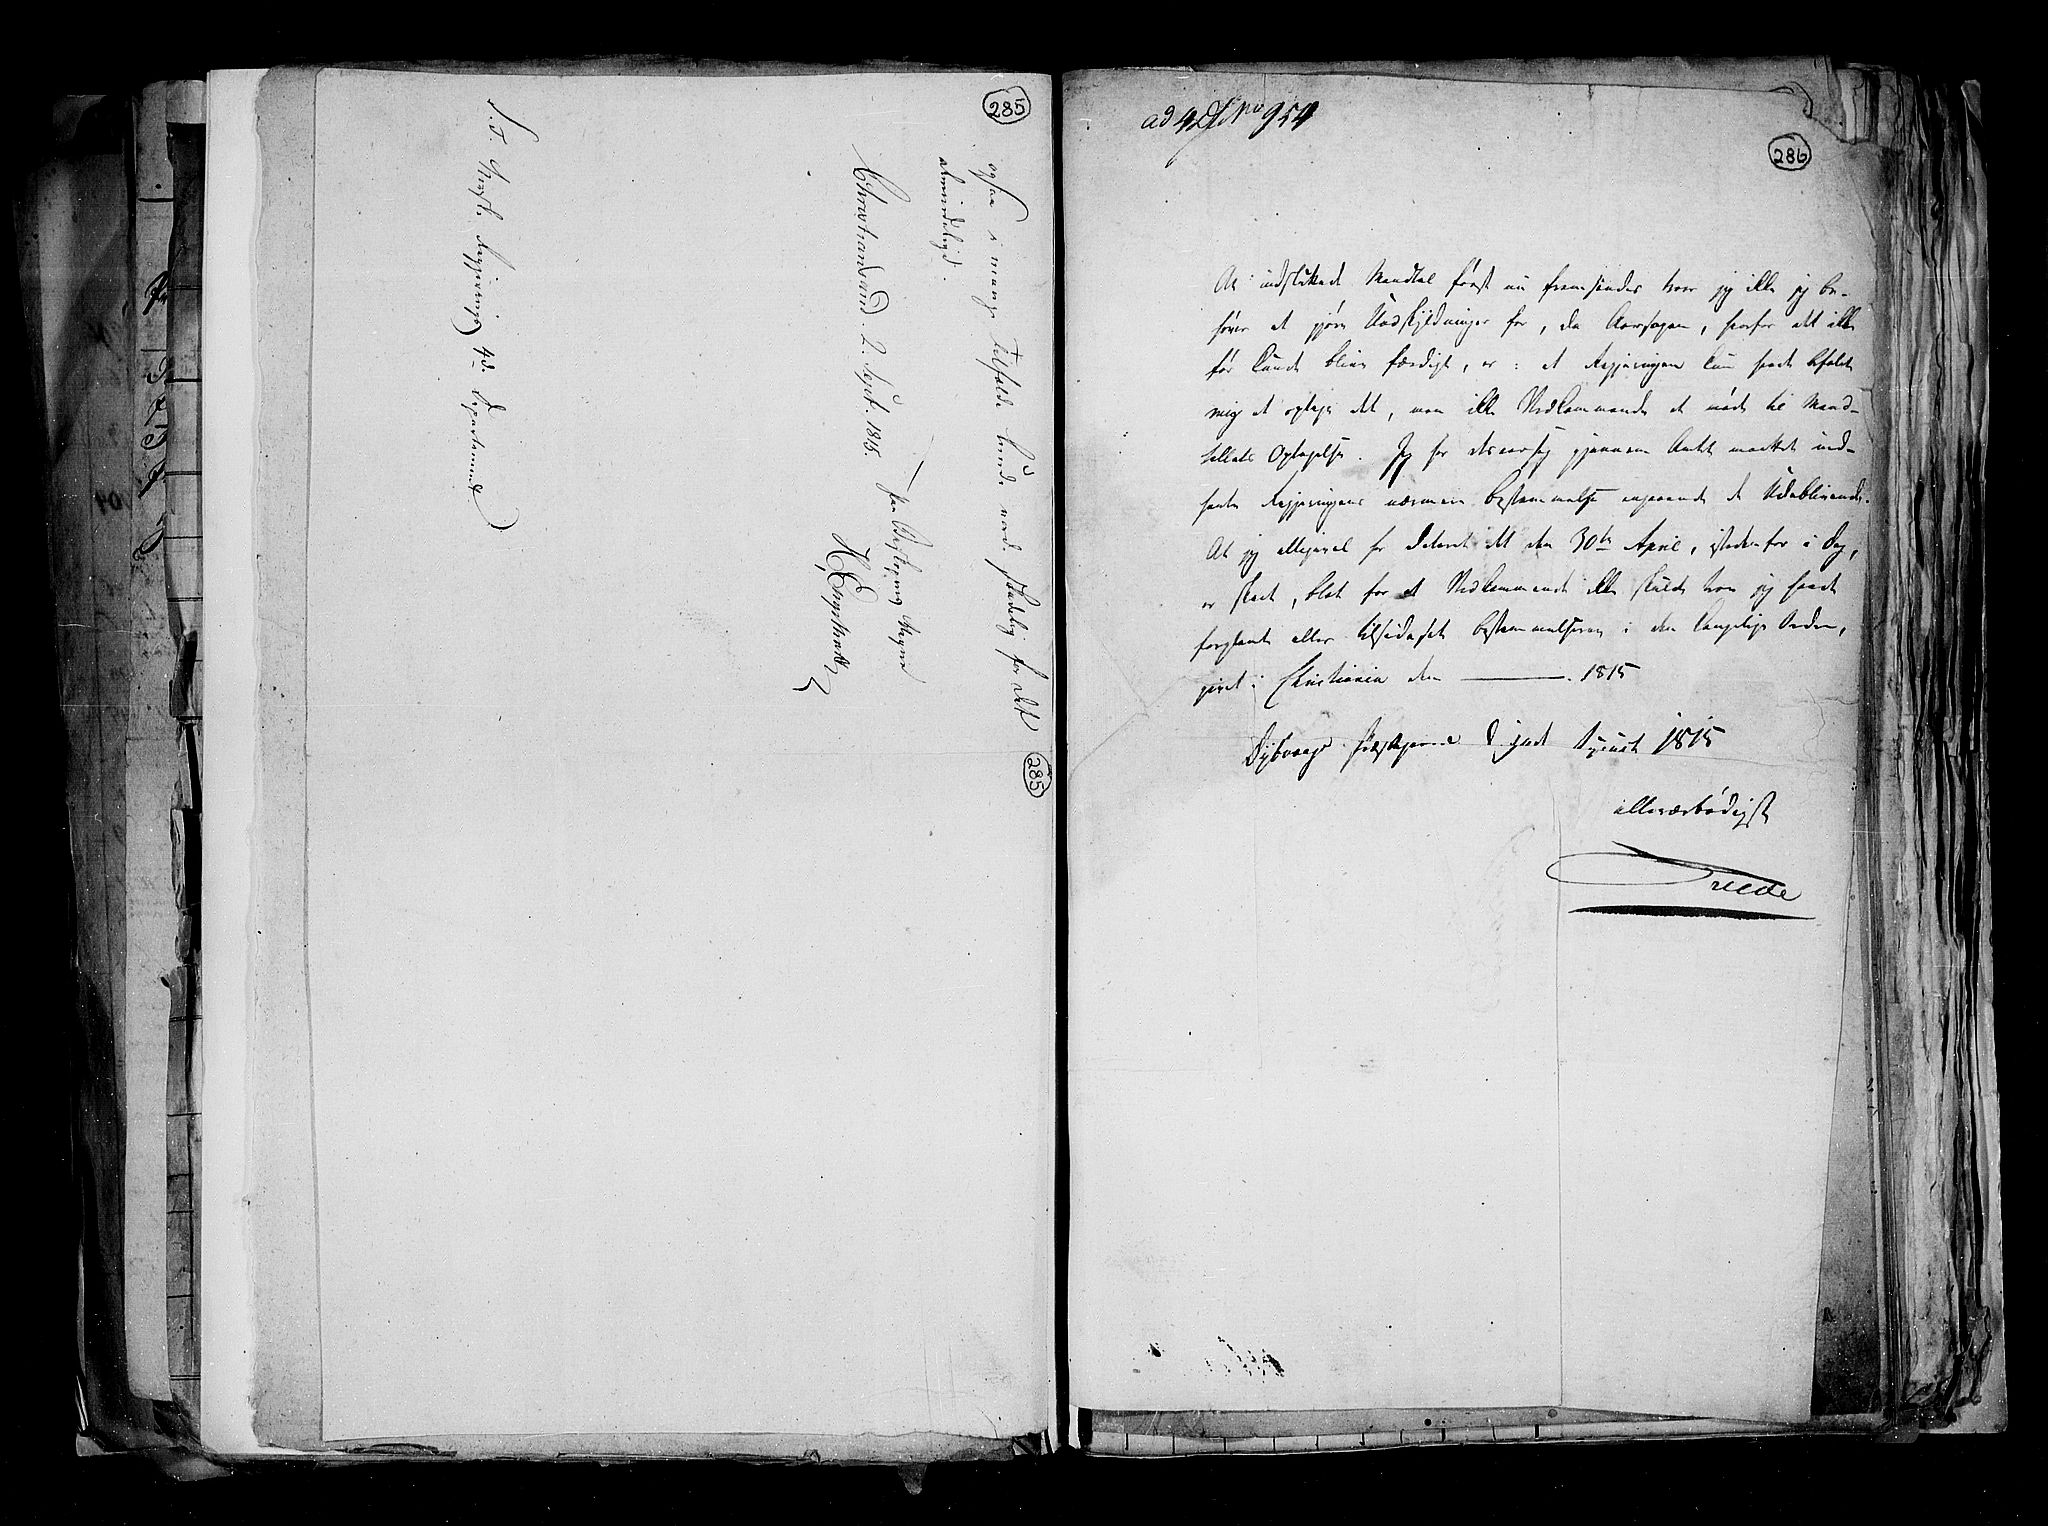 285
ogsaa i mange Tilfælde kunde være skadelig for det
almindelige.
Christiansand. 2. Sept. 1815.
H. Engelhart
Regjerings 4de Departement
285
ad 4 D No 954
286
At indsluttede Mandtal først nu fremsendes troer jeg ikke jeg be-
høver at gjøre Undskyldninger for, da Aarsagen, hvorfor det ikke
før kunde blive færdigt, er: at Regjeringen kun havde befalet
mig at optage det, men ikke Vedkommende at møde til Mand-
tallets Optagelse. Jeg har desaarsag gjennem Amtet maattet ind-
hente Regjeringens nærmere Bestemmelse angaaende de Udeblivende.
At jeg alligevel har dateret det den 30te April, istedenfor i Dag,
er skeet, blot for at Vedkommende ikke skulde troe jeg havde
forglemt eller tilsidesat Bestemmelserne i den kongelige Orden,
givet i Christiania den ——— 1815
Dybvaags Præstegaard August 1815
allerærbødigst